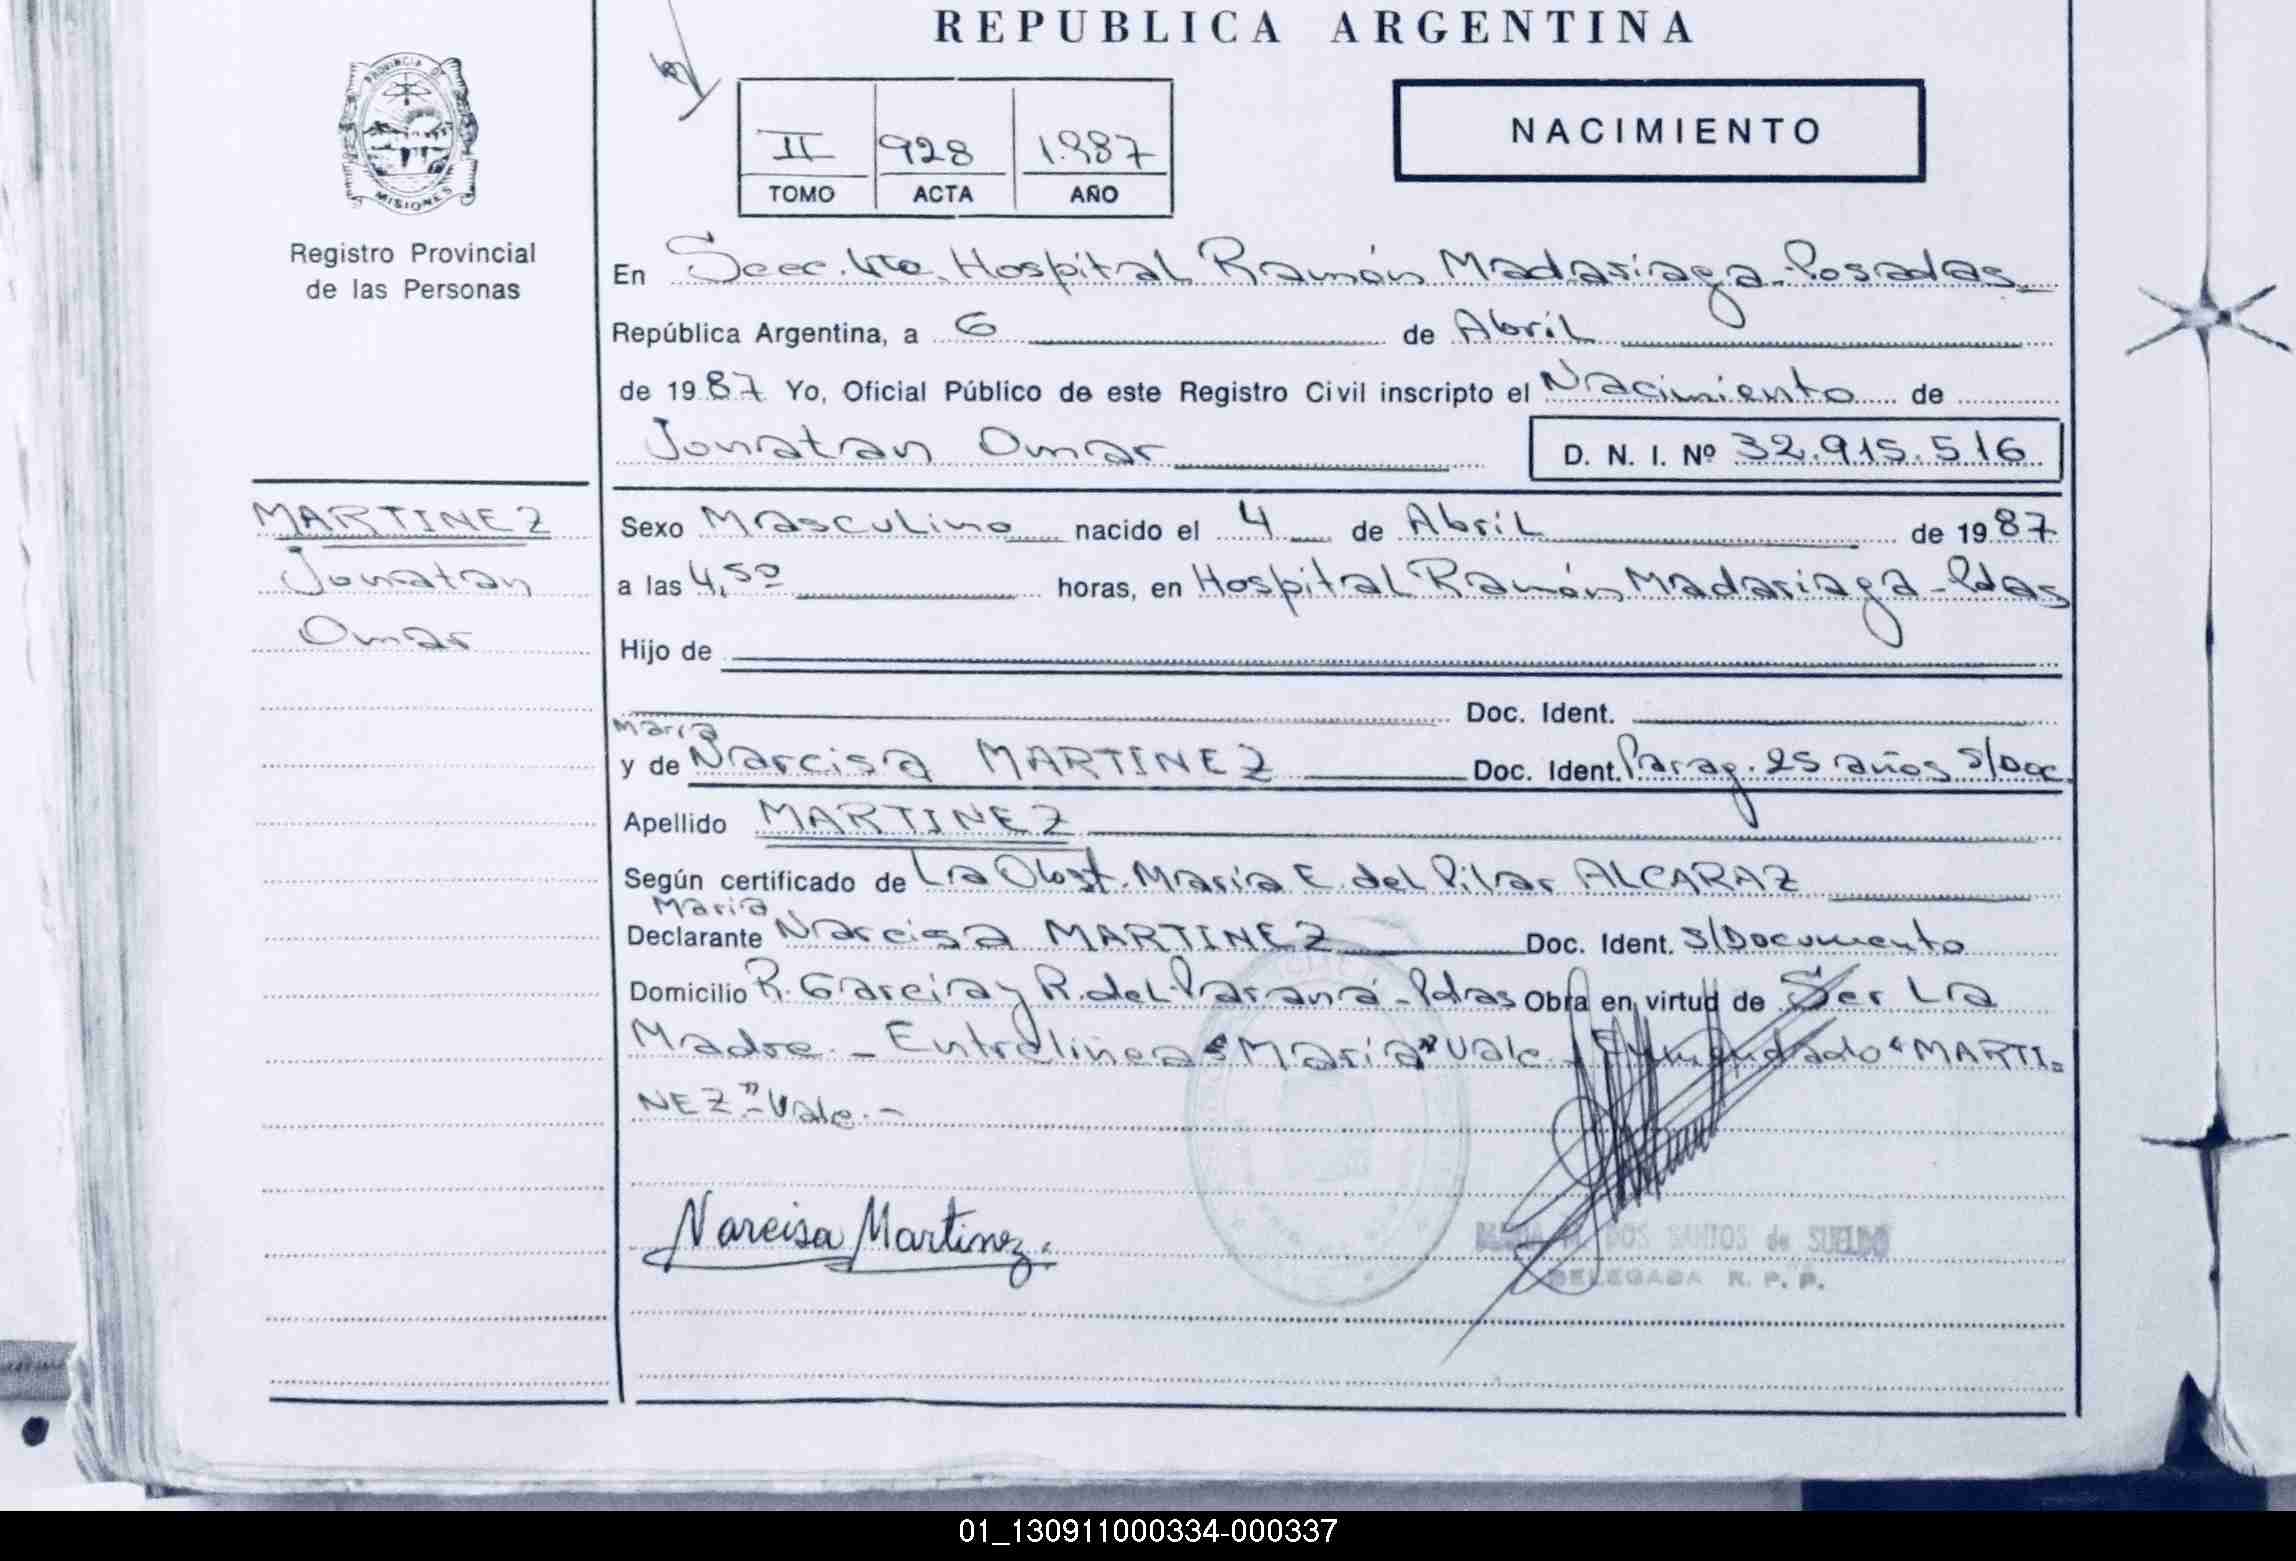 REPUBLICA ARGENTINA
PROVINCIA DE
MISIONES
Registro Provincial
de las Personas
II 928 1.987
TOMO ACTA AÑO
NACIMIENTO
En Secc. 4ta. Hospital Ramón Madariaga - Posadas
República Argentina, a 6 de Abril
de 1987 Yo, Oficial Público de este Registro Civil inscripto el Nacimiento de
Jonatan Omar D. N. I. Nº 32.915.516
MARTINEZ
Jonatan
Omar
Sexo Masculino nacido el 4 de Abril de 1987
a las 4,50 horas, en Hospital Ramón Madariaga - Pdas
Hijo de
Doc. Ident.
María
y de Narcisa MARTINEZ Doc. Ident. Parag. 25 años S/Doc.
Apellido MARTINEZ
Según certificado de La Obst. María E. del Pilar ALCARAZ
María
Declarante Narcisa MARTINEZ Doc. Ident. S/Documento
Domicilio R. Garcia y R. del Paraná - Pdas Obra en virtud de Ser La
Madre - Entrelineas "María" Vale - Enmendado "MARTI=
NEZ" - Vale. -
Narcisa Martinez.
DOS SANTOS de SUELDO
DELEGADA R. P. P.
01_130911000334-000337